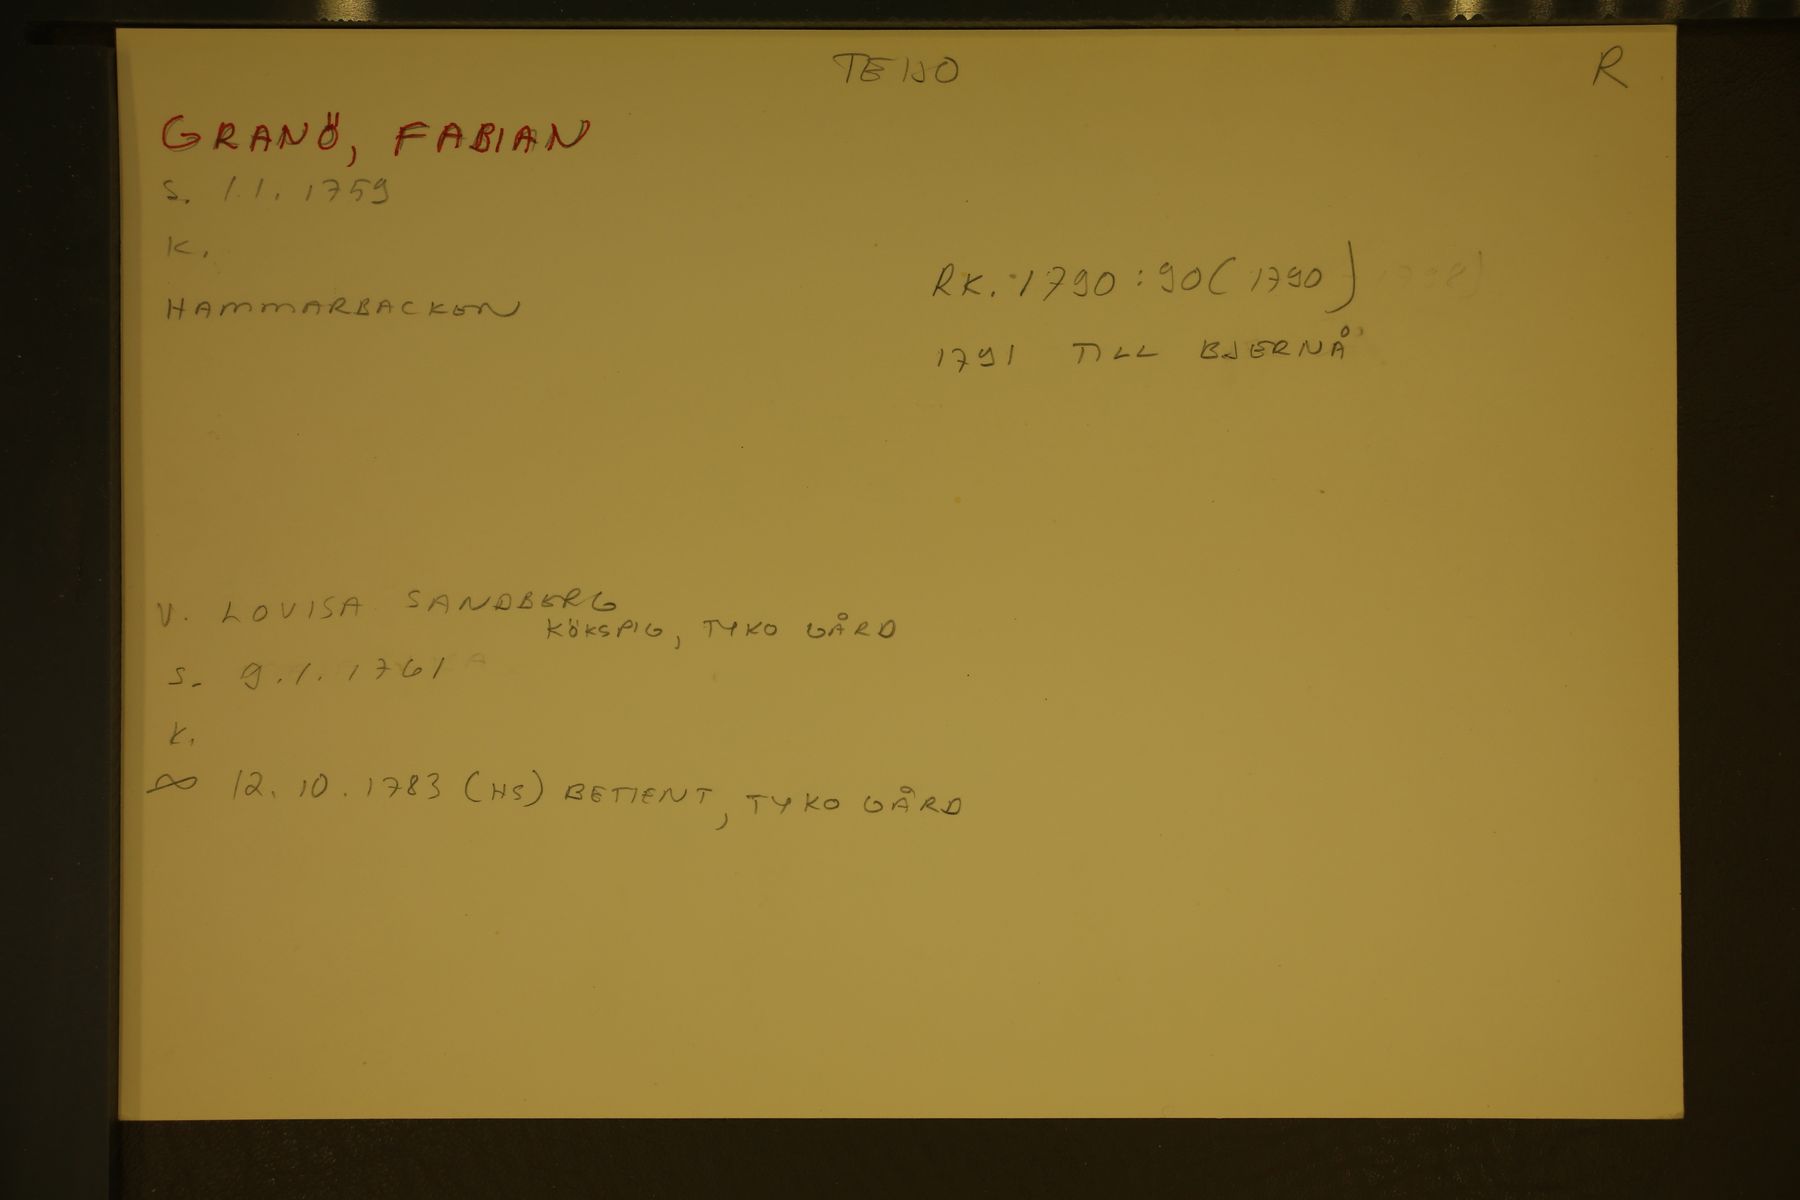 TEIJO
R
GRANÖ, FABIAN
S. 1.1. 1759
K.
HAMMARBACKEN
RK. 1790:90(1790)
1791 TILL BJERNÅ
V. LOVISA SANDBERG
KÖKSPIG, TYKO GÅRD
S. 9.1.1761
K.
∞ 12.10.1783 (HS) BETIENT, TYKO GÅRD